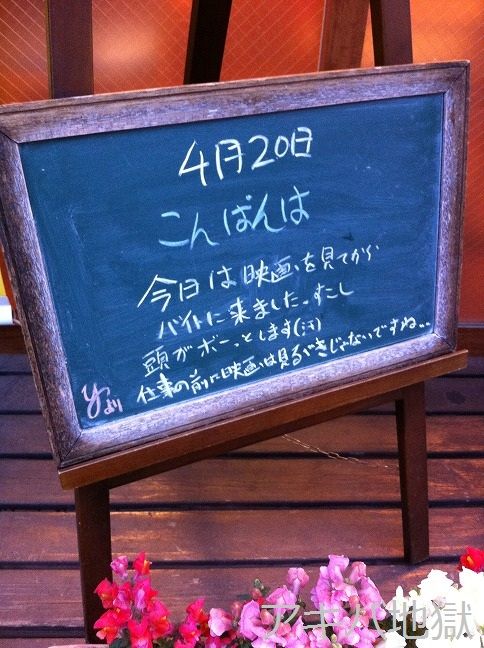 4月20日
こんばんは
今日は映画を見てから
バイトに来ました。すこし
頭がボーっとします(汗)
仕事の前に映画は見るべきじゃないですね…
yより
アキバ地獄